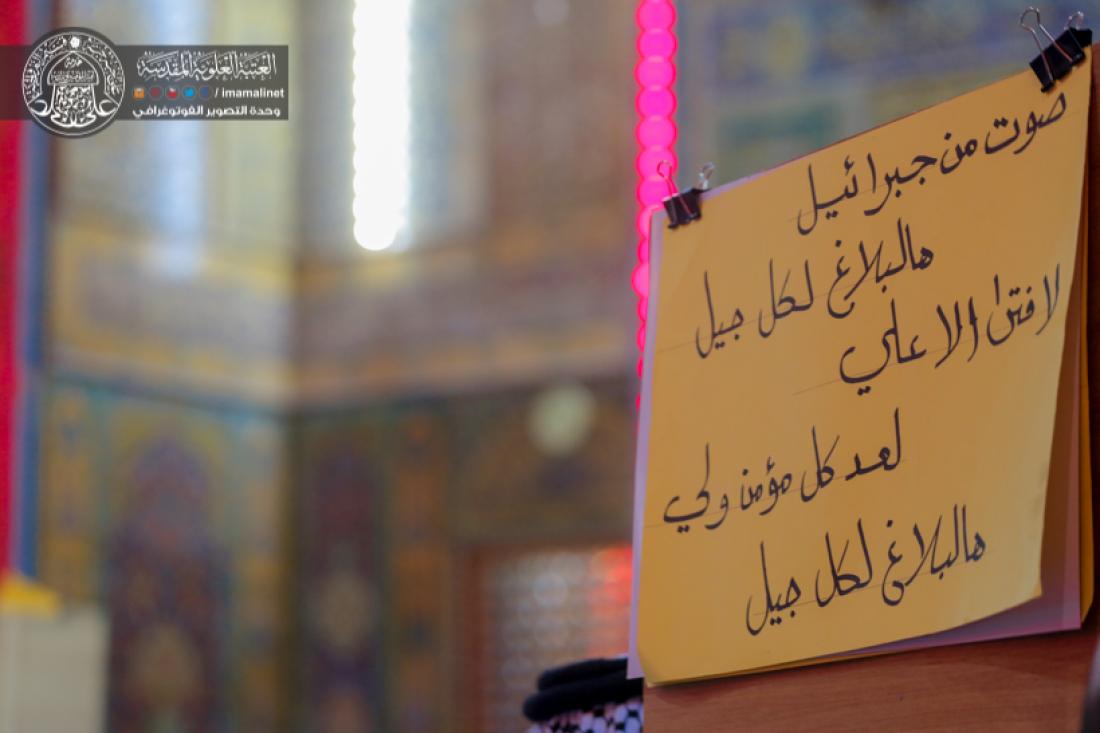 العتبة العلوية المقدسة
/ imamalinet
وحدة التصوير الفوتوغرافي
صوت من جبرائيل
هالبلاغ لكل جيل
لا فتى الا علي
لعد كل مؤمن ولي
هالبلاغ لكل جيل